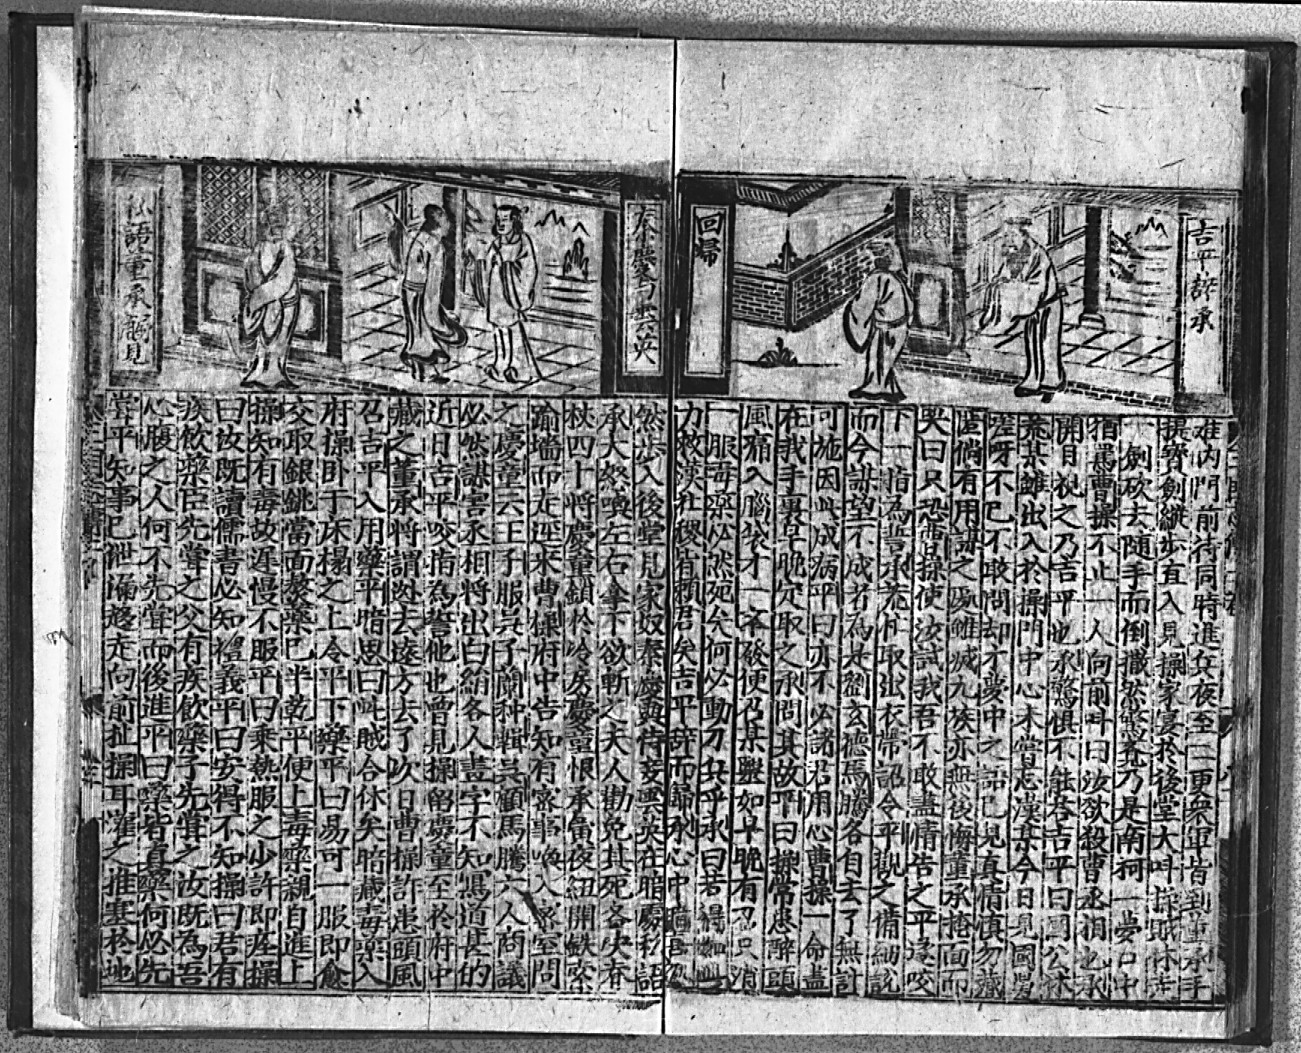 吉平辞承
回歸
在內門前待同時進兵夜至二更衆軍皆到董承手
提寶劍縱步直入見操家宴於後堂大叫操賊休走
一劍砍去隨手而倒撒然驚覺乃是南柯一夢口中
猶罵曹操不止一人向前叫曰汝欲殺曹丞相也承
開目視之乃吉平也承驚惧不能荅吉平曰國公休
荒某雖出入於操門中心未嘗忘漢某今日見國舅
嗟呀不已不敢問却才夢中之語已見真情慎勿藏
匿倘有用謀之處雖滅九族亦無後悔董承掩面而
哭曰只恐曹操使汝試我吾不敢盡情告之平遂咬
下一指為誓承荒忙取出衣帶詔令平觀之備細說
而今謀望不成者為是劉玄德馬騰各自去了無計
可施因此成病平曰亦不必諸君用心曹操一命盡
在我手裏早晚必取之承問其故平曰操常患醉頭
風痛入腦袋才一發便召某醫如早晚有召只消
一服毒藥必然死矣何必動刀兵乎承曰若得如此
力救漢社稷皆賴君矣吉平辞而歸承心中暗喜
秦慶与雲英
私語董承竊見
然步入後堂見家奴秦慶與侍妾雲英在暗處私語
承大怒喚左右拿下欲斬之夫人勸免其死各決脊
杖四十將慶童鎖於冷房慶童恨承夤夜紐開鉄索
踰墻而走逕來曹操府中告知有密事喚入密室問
之慶童云王子服吳子蘭种輯吳碩馬騰六人商議
必然謀害丞相將出白絹各人畫字不知寫道甚的
近日吉平咬指為誓他也曾見操留慶童至於府中
藏之董承將謂逃去遠方去了次日曹操許患頭風
召吉平入用藥平暗思曰此賊合休矣暗藏毒藥入
府操卧于床榻之上令平下藥平曰易可一服即愈
交取銀銚當面熬藥已半乾平便上毒藥親自進上
操知有毒故遲慢不服平曰乘熱服之少許即痊操
曰汝既讀儒書必知禮義平曰安得不知操曰君有
疾飲藥臣先嘗之父有疾飲藥子先嘗之汝既為吾
心腹之人何不先嘗而後進平曰藥者真藥何必先
嘗平知事已泄漏趍走向前扯操耳灌之推塞於地